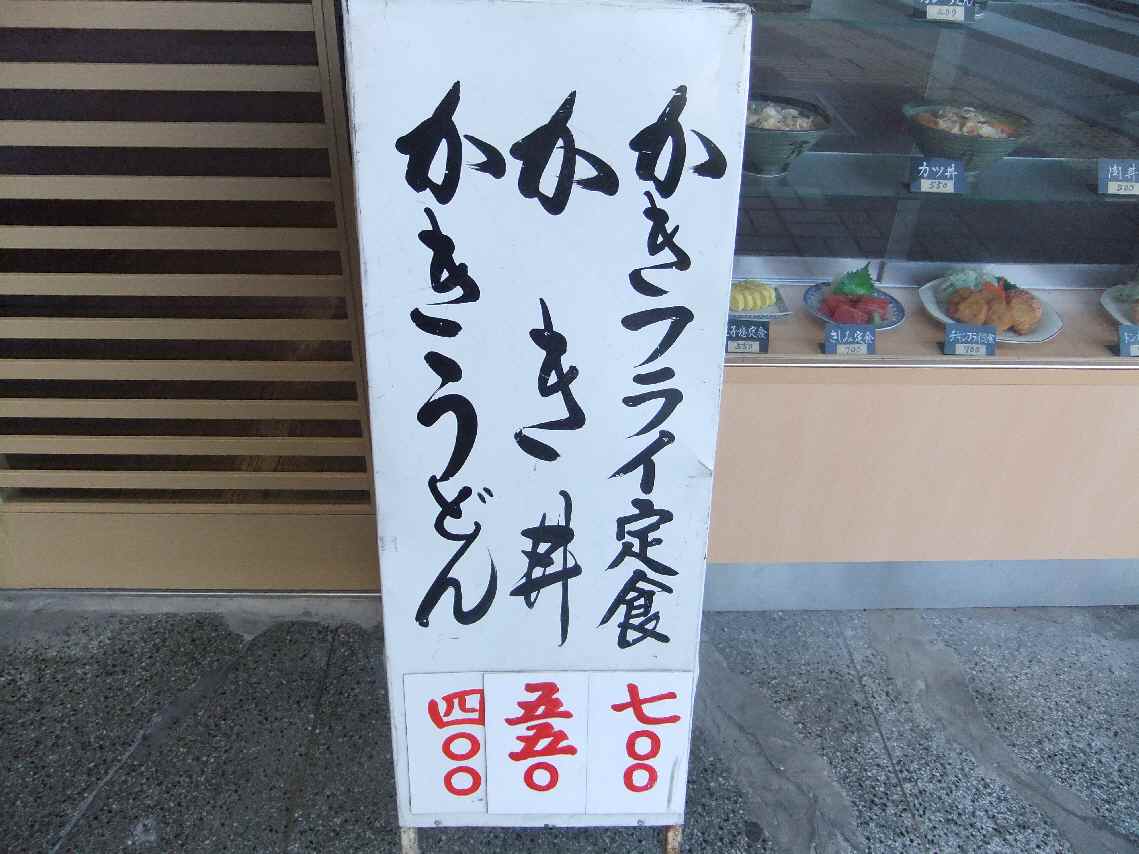 かきフライ定食
七〇〇
かき丼
五五〇
かきうどん
四〇〇
カツ丼
550
さしみ定食
700
チキンフライ定食
700